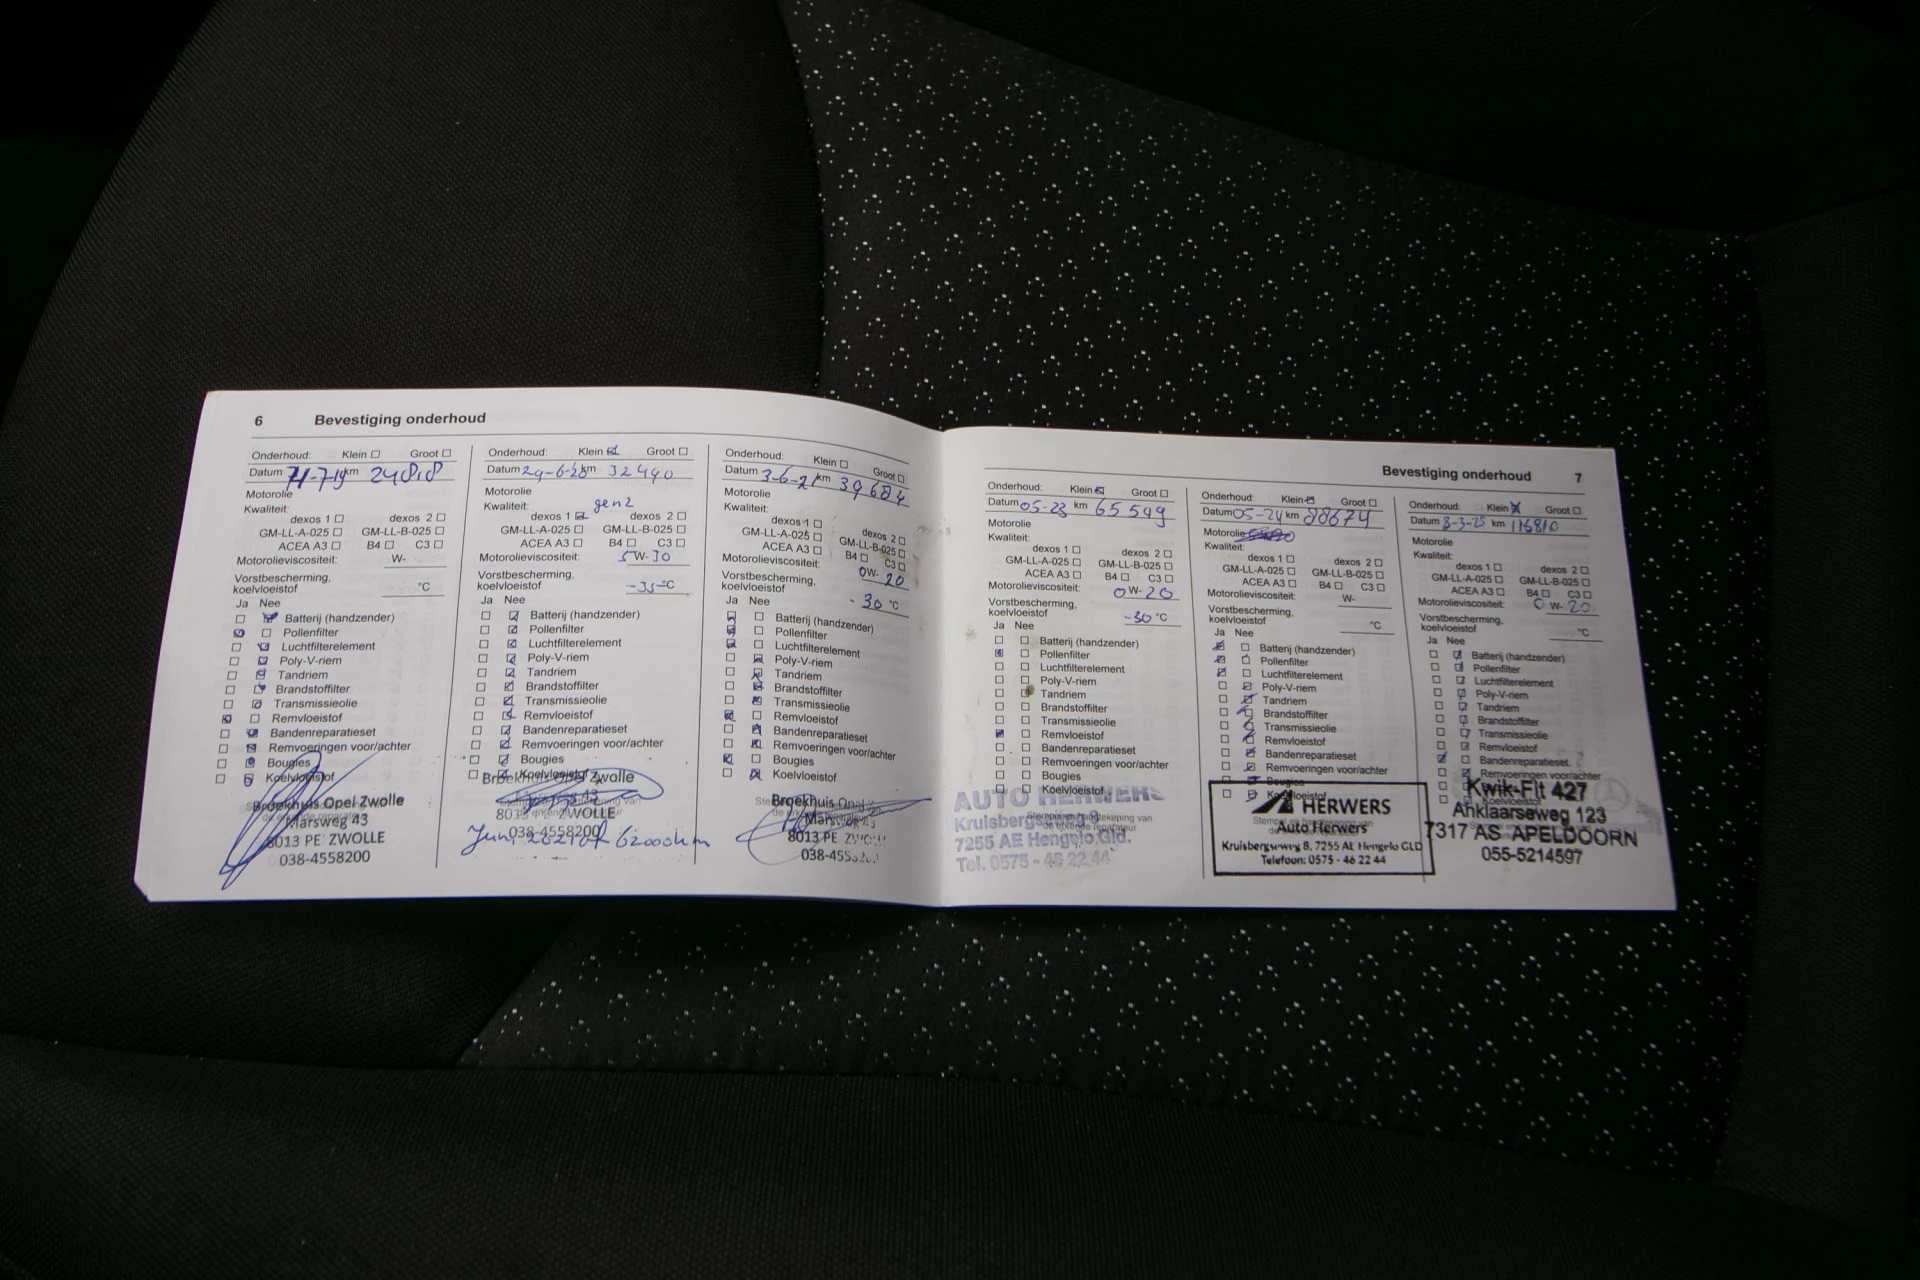 6 Bevestiging onderhoud
Onderhoud: Klein Groot
Datum -7-19 km 24818
Motorolie
Kwaliteit:
dexos 1 dexos 2
GM-LL-A-025 GM-LL-B-025
ACEA A3 B4 C3
Motorolieviscositeit: W-
Vorstbescherming,
koelvloeistof °C
Ja Nee
Batterij (handzender)
Pollenfilter
Luchtfilterelement
Poly-V-riem
Tandriem
Brandstoffilter
Transmissieolie
Remvloeistof
Bandenreparatieset
Remvoeringen voor/achter
Bougies
Koelvloeistof
Broekhuis Opel Zwolle
Marsweg 43
8013 PE ZWOLLE
038-4558200
Onderhoud: Klein Groot
Datum 29-6-20 km 32490
Motorolie
Kwaliteit: gen2
dexos 1 dexos 2
GM-LL-A-025 GM-LL-B-025
ACEA A3 B4 C3
Motorolieviscositeit: 5 W- 30
Vorstbescherming,
koelvloeistof -35 °C
Ja Nee
Batterij (handzender)
Pollenfilter
Luchtfilterelement
Poly-V-riem
Tandriem
Brandstoffilter
Transmissieolie
Remvloeistof
Bandenreparatieset
Remvoeringen voor/achter
Bougies
Koelvloeistof
Broekhuis Opel Zwolle
43
ZWOLLE
038-4558200
Juni 2021 of 62000km
Onderhoud: Klein Groot
Datum 3-6-21 km 39684
Motorolie
Kwaliteit:
dexos 1 dexos 2
GM-LL-A-025 GM-LL-B-025
ACEA A3 B4 C3
Motorolieviscositeit: 0W- 20
Vorstbescherming,
koelvloeistof -30 °C
Ja Nee
Batterij (handzender)
Pollenfilter
Luchtfilterelement
Poly-V-riem
Tandriem
Brandstoffilter
Transmissieolie
Remvloeistof
Bandenreparatieset
Remvoeringen voor/achter
Bougies
Koelvloeistof
Broekhuis Opel
43
8013 PE
Bevestiging onderhoud 7
Onderhoud: Klein Groot
Datum 05-23 km 65549
Motorolie
Kwaliteit:
dexos 1 dexos 2
GM-LL-A-025 GM-LL-B-025
ACEA A3 B4 C3
Motorolieviscositeit: 0 W- 20
Vorstbescherming,
koelvloeistof -30 °C
Ja Nee
Batterij (handzender)
Pollenfilter
Luchtfilterelement
Poly-V-riem
Tandriem
Brandstoffilter
Transmissieolie
Remvloeistof
Bandenreparatieset
Remvoeringen voor/achter
Bougies
Koelvloeistof
AUTO HERWERS
8
7255 AE Hengelo Gld.
Tel. 0575 - 46 22 44
Onderhoud: Klein Groot
Datum 05-24 km 88674
Motorolie
Kwaliteit:
dexos 1 dexos 2
GM-LL-A-025 GM-LL-B-025
ACEA A3 B4 C3
Motorolieviscositeit: W-
Vorstbescherming,
koelvloeistof °C
Ja Nee
Batterij (handzender)
Pollenfilter
Luchtfilterelement
Poly-V-riem
Tandriem
Brandstoffilter
Transmissieolie
Remvloeistof
Bandenreparatieset
Remvoeringen voor/achter
Bougies
HERWERS
Auto Herwers
Kruisbergseweg 8, 7255 AE Hengelo GLD
Telefoon: 0575 - 46 22 44
Onderhoud: Klein Groot
Datum 8-3-25 km 116810
Motorolie
Kwaliteit:
dexos 1 dexos 2
GM-LL-A-025 GM-LL-B-025
ACEA A3 B4 C3
Motorolieviscositeit: 0 W- 20
Vorstbescherming,
koelvloeistof °C
Ja Nee
Batterij (handzender)
Pollenfilter
Luchtfilterelement
Poly-V-riem
Tandriem
Brandstoffilter
Transmissieolie
Remvloeistof
Bandenreparatieset
Remvoeringen voor/achter
Kwik-Fit 427
Anklaarseweg 123
7317 AS APELDOORN
055-5214597